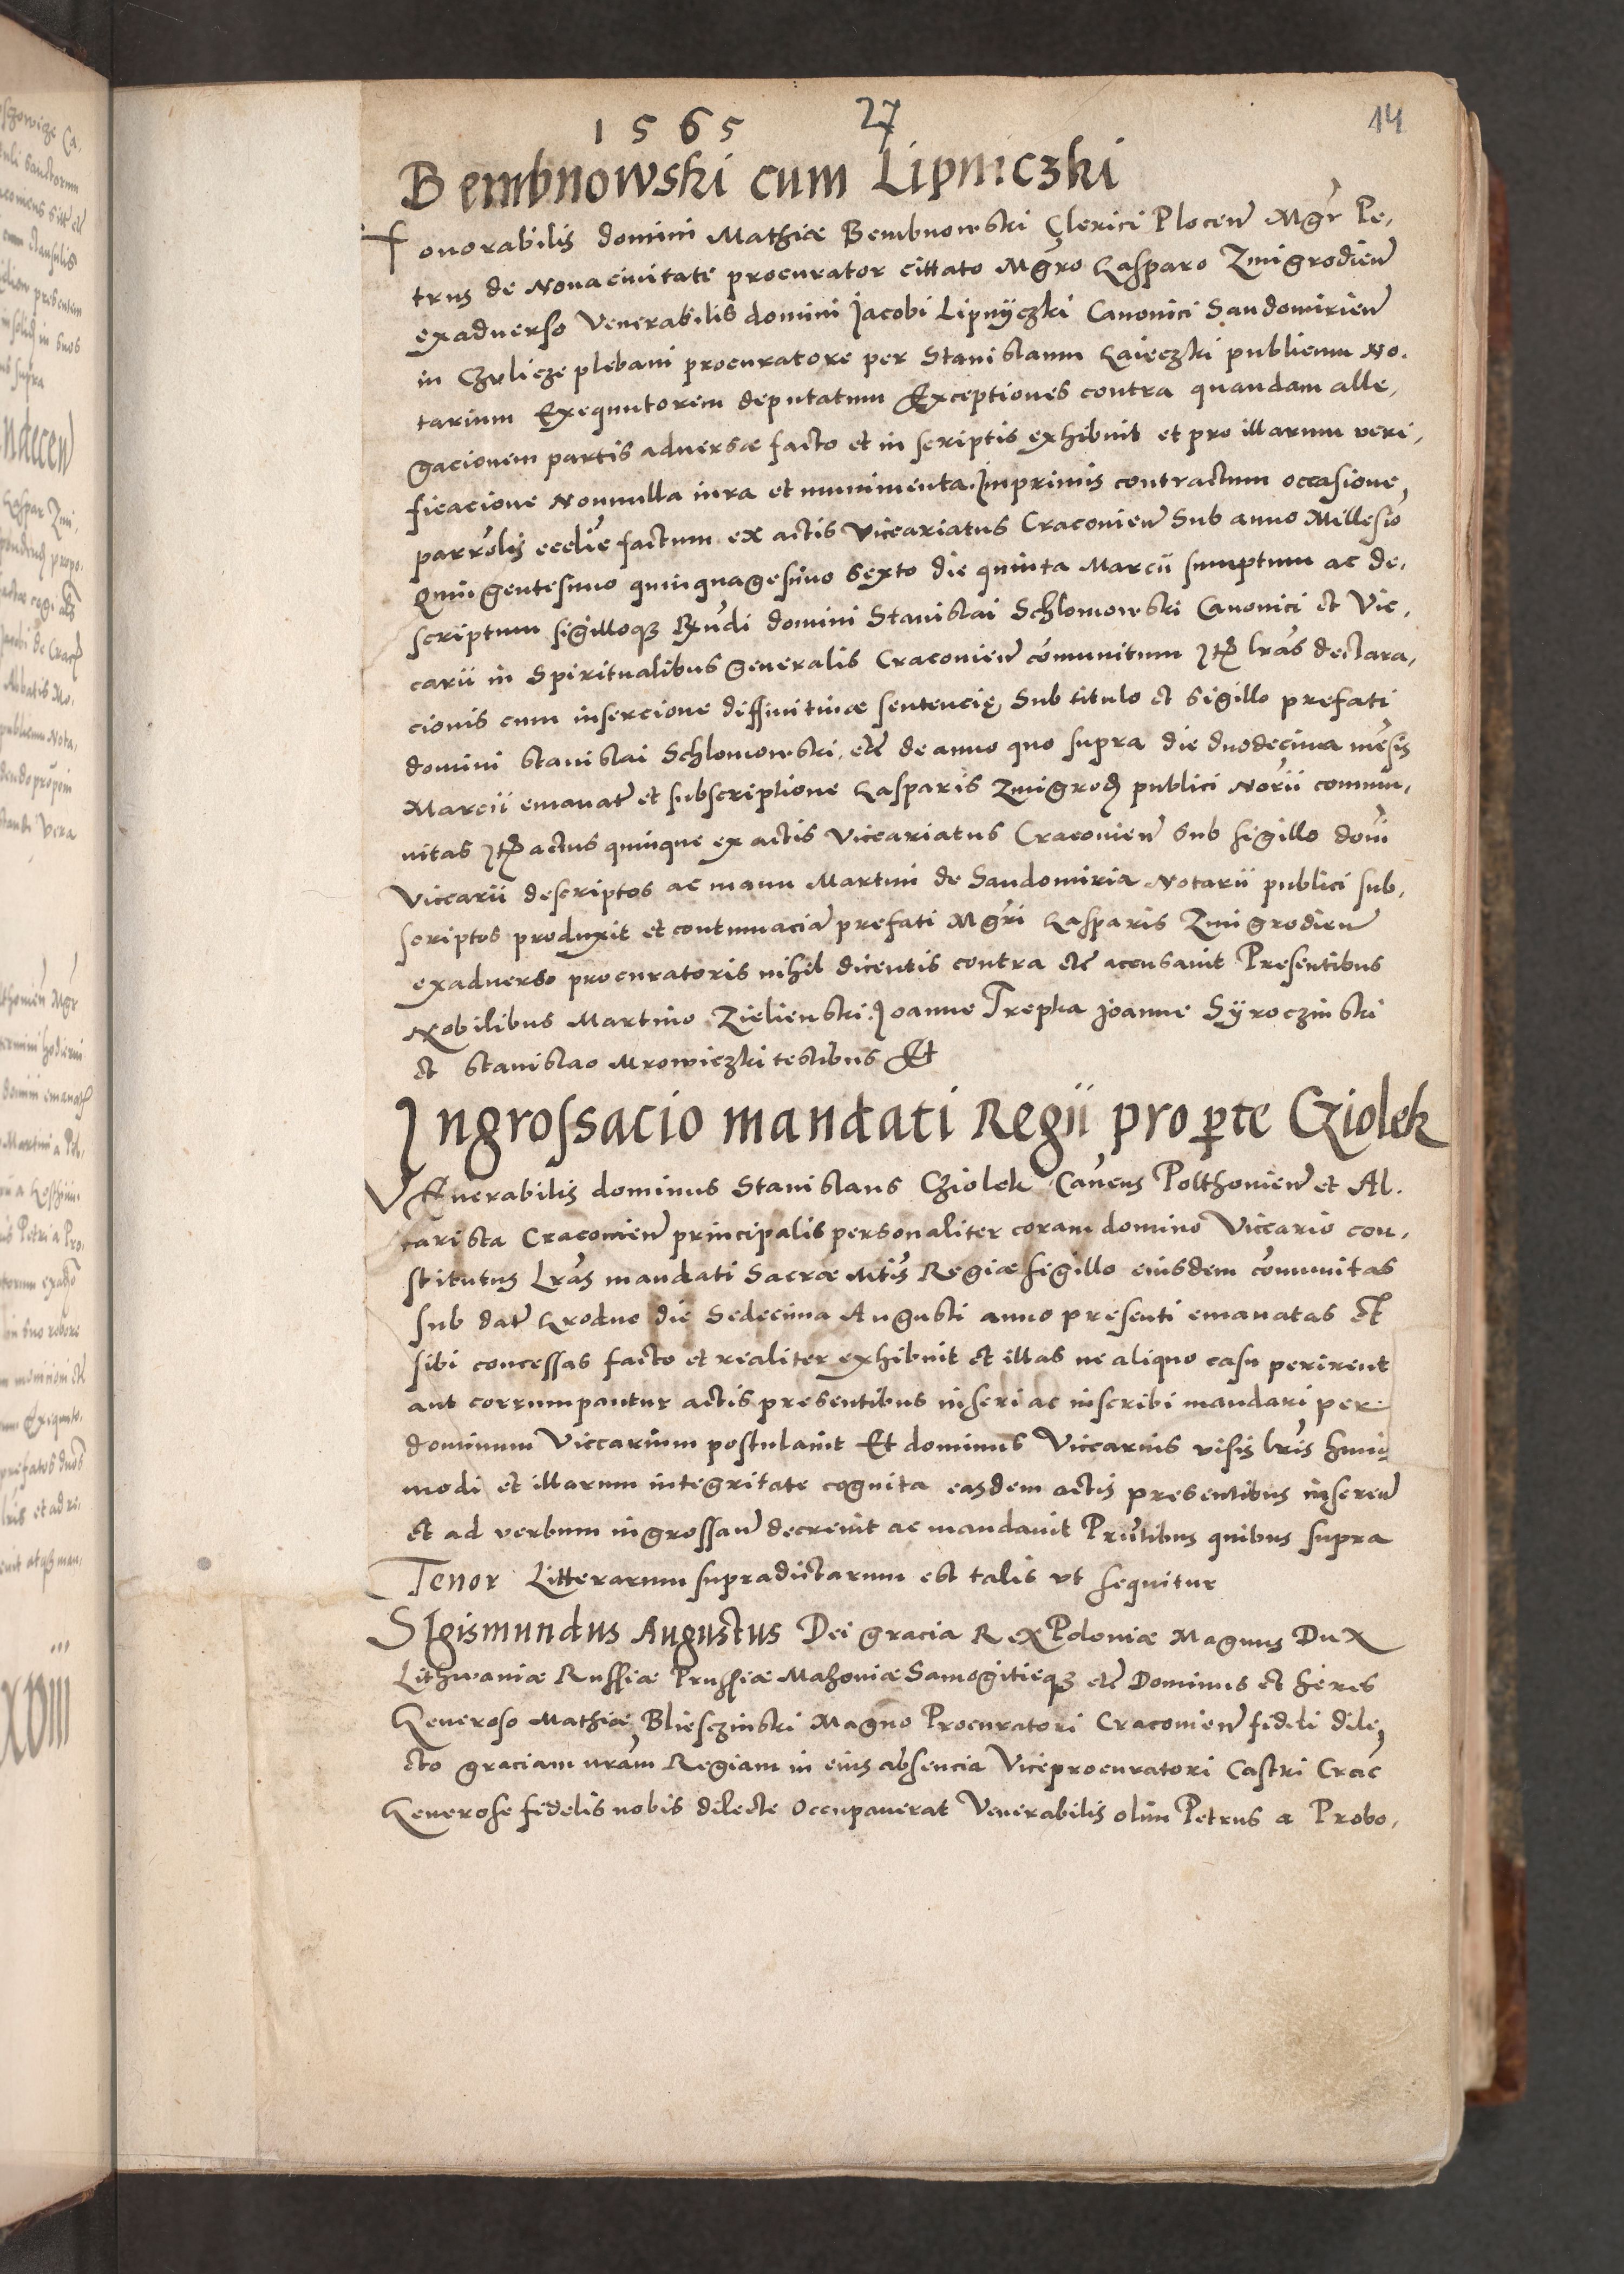 1565 27 14
Bembnowski cum Lipniczki
Honorabilis domini Mathiæ Bembnowski Clerici Plocen̄ Mgr̄ Pe,
trus de Nova civitate procurator cittato Mgr̄o Gasparo Zmigrodien̄
exadverso Venerabilis domini Jacobi Lipnyczki Canonici Sandomirien̄
in Czulicze plebani procuratore per Stanislaum Gaieczki publicum No.
tarium Exequutorem deputatum Exceptiones contra quandam alle,
gacionem partis adversæ facto et in scriptis exhibuit et pro illarum veri,
ficacione Nonnulla iura et munimenta. Inprimis contractum occasione
parr̄olis eccl̄ie factum ex actis Vicariatus Cracovien̄ Sub anno Millesīo
Quingentesimo quinquagesimo sexto die quinta Marcii sumptum ac de,
scriptum sigilloqꝫ Rn̄di domini Stanislai Schlomowski Canonici et Vic,
carii in Spiritualibus generalis Cracovien̄ com̄unitum Itꝫ lr̄as declara,
cionis cum insercione diffinitivæ sentencię Sub titulo et sigillo prefati
domini Stanislai Schlomowski etc̄ de anno quo supra die duodecima mēsis
Marcii emanat̄ et subscriptione Gasparis Zmigroꝺ publici Nor̄ii commu,
nitas Itꝫ actus quinque ex actis Viccariatus Cracovien̄ sub sigillo dom̄i
Viccarii descriptos ac manu Martini de Sandomiria Notarii publici sub,
scriptos produxit et contumaciā prefati Mgr̄i Gasparis Zmigrodien̄
exadverso procuratoris nihil dicentis contra etc̄ accusavit Presentibus
Nobilibus Martino Zielienski. Joanne Trepka Joanne Syroczinski
et Stanislao Mrowiczki testibus Et
Ingrossacio mandati Regii pro ꝑte Cziolek
VEnerabilis dominus Stanislaus Cziolek Can̄cus Polthovien̄ et Al.
tarista Cracovien̄ principalis personaliter coram domino Viccario con,
stitutus Lr̄as mandati Sacræ Mt̄is Regiæ sigillo eiusdem com̄unitas
sub dat̄ Grodno die Sedecima Augusti anno presenti emanatas et
sibi concessas facto et realiter exhibuit et illas ne aliquo casu perirent
aut corrumpantur actis presentibus inseri ac inscribi mandari per
dominum Viccarium postulavit Et dominus Viccarius visis lr̄is huiꝰ
modi et illarum integritate cognita easdem actis presentibus inseren̄
et ad verbum ingrossan̄ decrevit ac mandavit Prn̄tibus quibus supra
Tenor Litterarum supradictarum est talis ut sequitur
SIgismundus Augustus Dei gracia Rex Poloniæ Magnus Dux
Lithwaniæ Russiæ Prussiæ Masoviæ Samogitięqꝫ etc̄ Dominus et heres
Generoso Mathiæ Blieszinski Magno Procuratori Cracovien̄ fideli dile,
cto graciam nr̄am Regiam in eius absencia Viceprocuratori Castri Crac̄
Generose fidelis nobis dilecte Occupaverat Venerabilis olim Petrus a Probo,